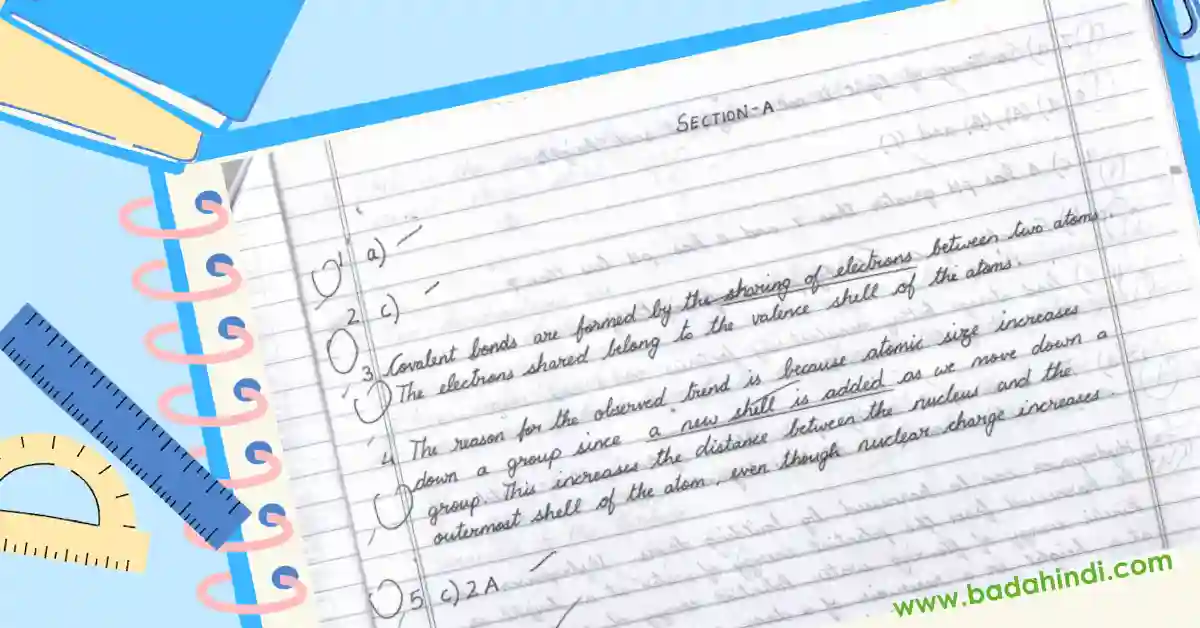 SECTION-A
1 a)
2 c)
3 Covalent bonds are formed by the sharing of electrons between two atoms.
The electrons shared belong to the valence shell of the atoms.
4 The reason for the observed trend is because atomic size increases
down a group since a new shell is added as we move down a
group. This increases the distance between the nucleus and the
outermost shell of the atom, even though nuclear charge increases.
5 c) 2 A
www.badahindi.com